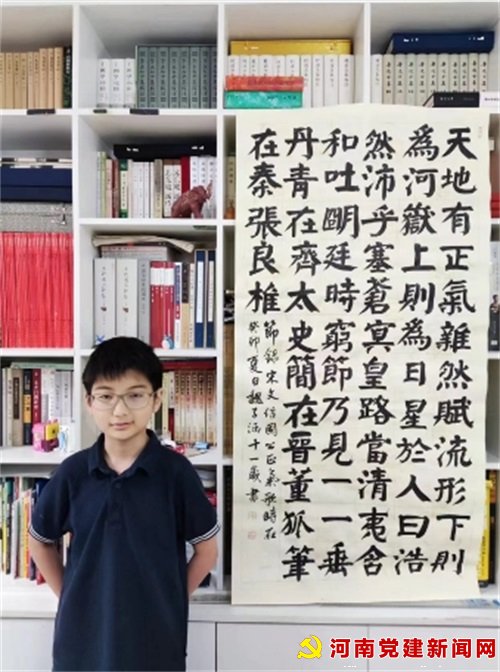 天地有正氣雜然賦流形下則
為河嶽上則為日星於人曰浩
然沛乎塞蒼冥皇路當清夷含
和吐明廷時窮節乃見一一垂
丹青在齊太史簡在晉董狐筆
在秦張良椎
節錄宋文信國公正氣歌時在
癸卯夏日魏子涵十一歲書
河南党建新闻网